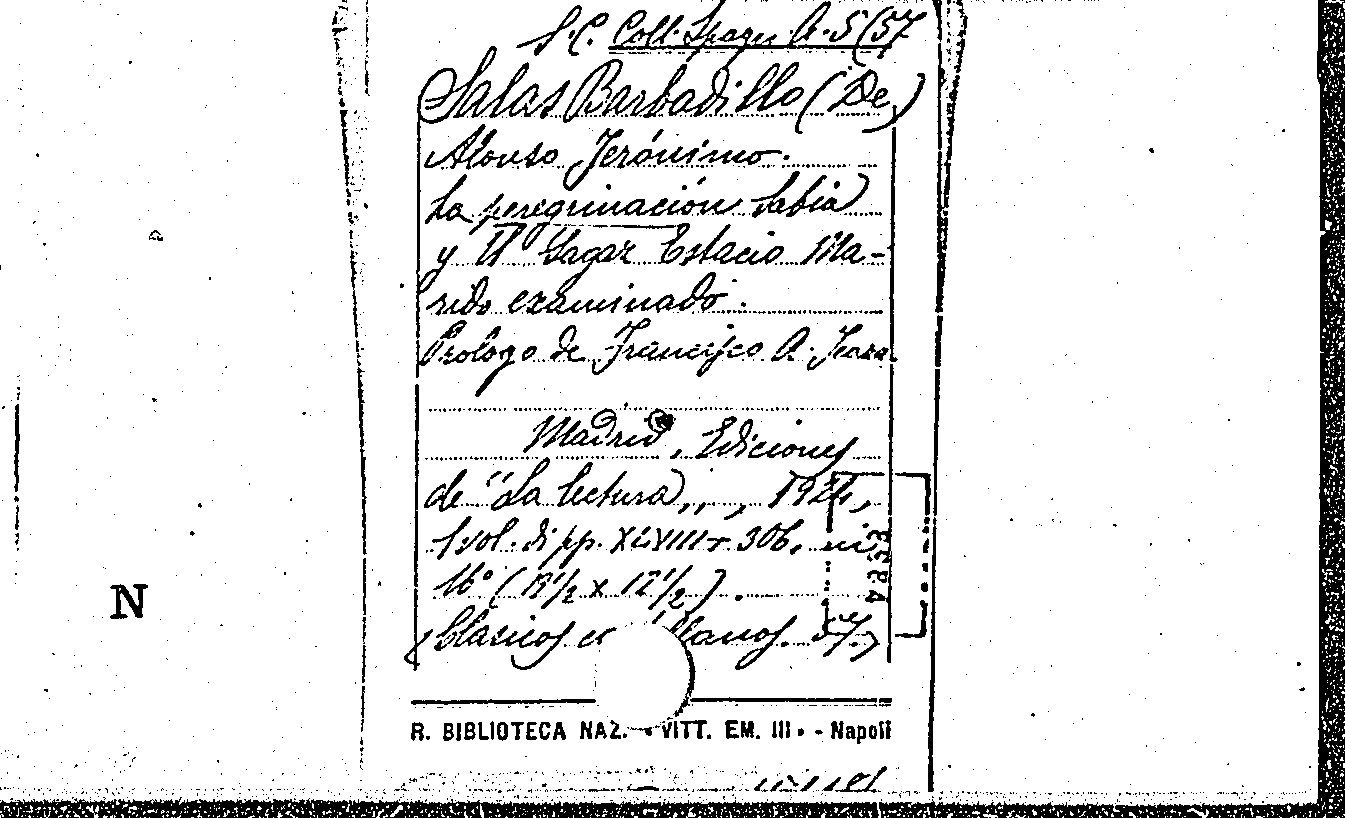 S.C. Coll. Spagn A. 5(57
Salas Barbadillo (De)
Alonso Jerónimo.
La peregrinación sabia
y El Sagaz Estacio Ma-
rido examinado.
Prologo de Francisco A. Icaza.
Madrid, Ediciones
de "La lectura,,, 1924,
1 vol. di pp. XLVIII+306, in
16° (18½ x 12½).
(Clasicos ca llanos. 57.)
R. BIBLIOTECA NAZ. VITT. EM. III. - Napoli
N